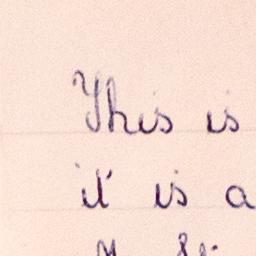 This is
it is a